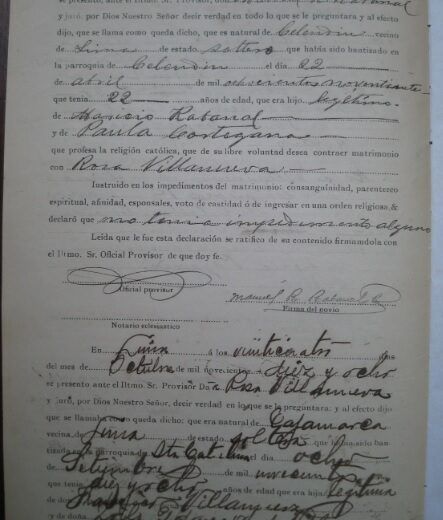 y juró por Dios Nuestro Señor decir verdad en todo lo que se le preguntara y al efecto
dijo, que se llama como queda dicho, que es natural de Celendin vecino
de Lima de estado soltero que había sido bautizado en
la parroquia de Celendin el día 22
de abril de mil ochocientos noventiseis
que tenía 22 años de edad, que era hijo legítimo
de Rabanal
y de Paula Cortegana
que profesa la religión católica, que de su libre voluntad desea contraer matrimonio
con Rosa Villanueva
Instruido en los impedimentos del matrimonio: consanguinidad, parentezco
espiritual, afinidad, esponsales, voto de castidad ó de ingresar en una orden religiosa, &
declaró que no tenia impedimento alguno
Leída que le fue esta declaración se ratificó de su contenido firmándola con
el Iltmo. Sr. Oficial Provisor de que doy fe.
Oficial provisor
Firma del novio
Notario eclesiástico
En Lima á los veinticuatro días
del mes de Octubre de mil novecientos diez y ocho
se presentó ante el Iltmo Sr. Provisor Da Rosa Villanueva
y juró, por Dios Nuestro Señor, decir verdad en lo que se le preguntara: y al efecto dijo
que se llamaba como queda dicho: que era natural de Cajamarca
vecina de Lima de estado soltera que había sido bau
tizada en la parroquia de Sta Catalina el día ocho
de Setiembre de mil novecientos
que diez y ocho años de edad que era hija legítima
de don Villanueva
y de doña